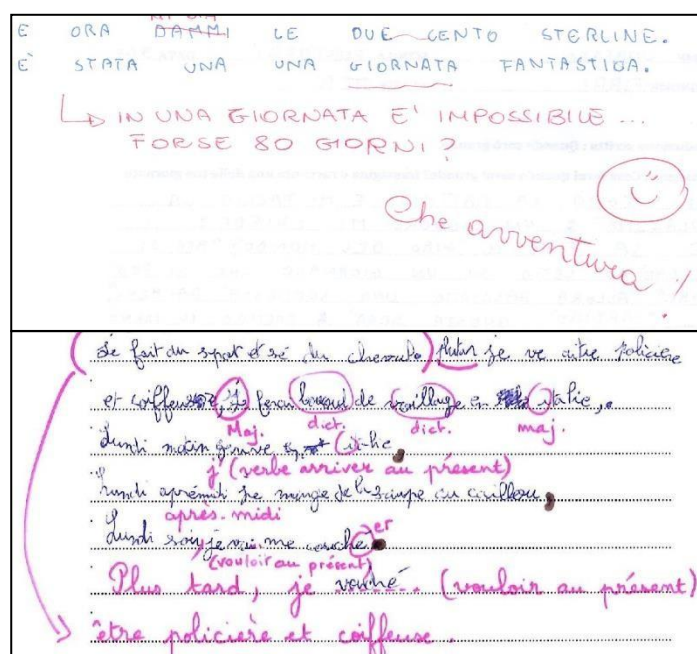 MI DIA
E ORA DAMMI LE DUE CENTO STERLINE.
E' STATA UNA UNA GIORNATA FANTASTICA.
IN UNA GIORNATA E' IMPOSSIBILE ...
FORSE 80 GIORNI?
Che avventura!
je fait du sport et sé du chevale) plutar je ve aitre policiere
et coiffeuse, je ferai de en italie,.
Maj. dict. dict. maj.
Lundi matin italie,
j' (verbe arriver au présent)
Lundi je mange de la soupe au caillou,
après-midi
Lundi soir, je vai me couché er
(vouloir au présent)
Plus tard, je (vouloir au présent)
être policière et coiffeuse.